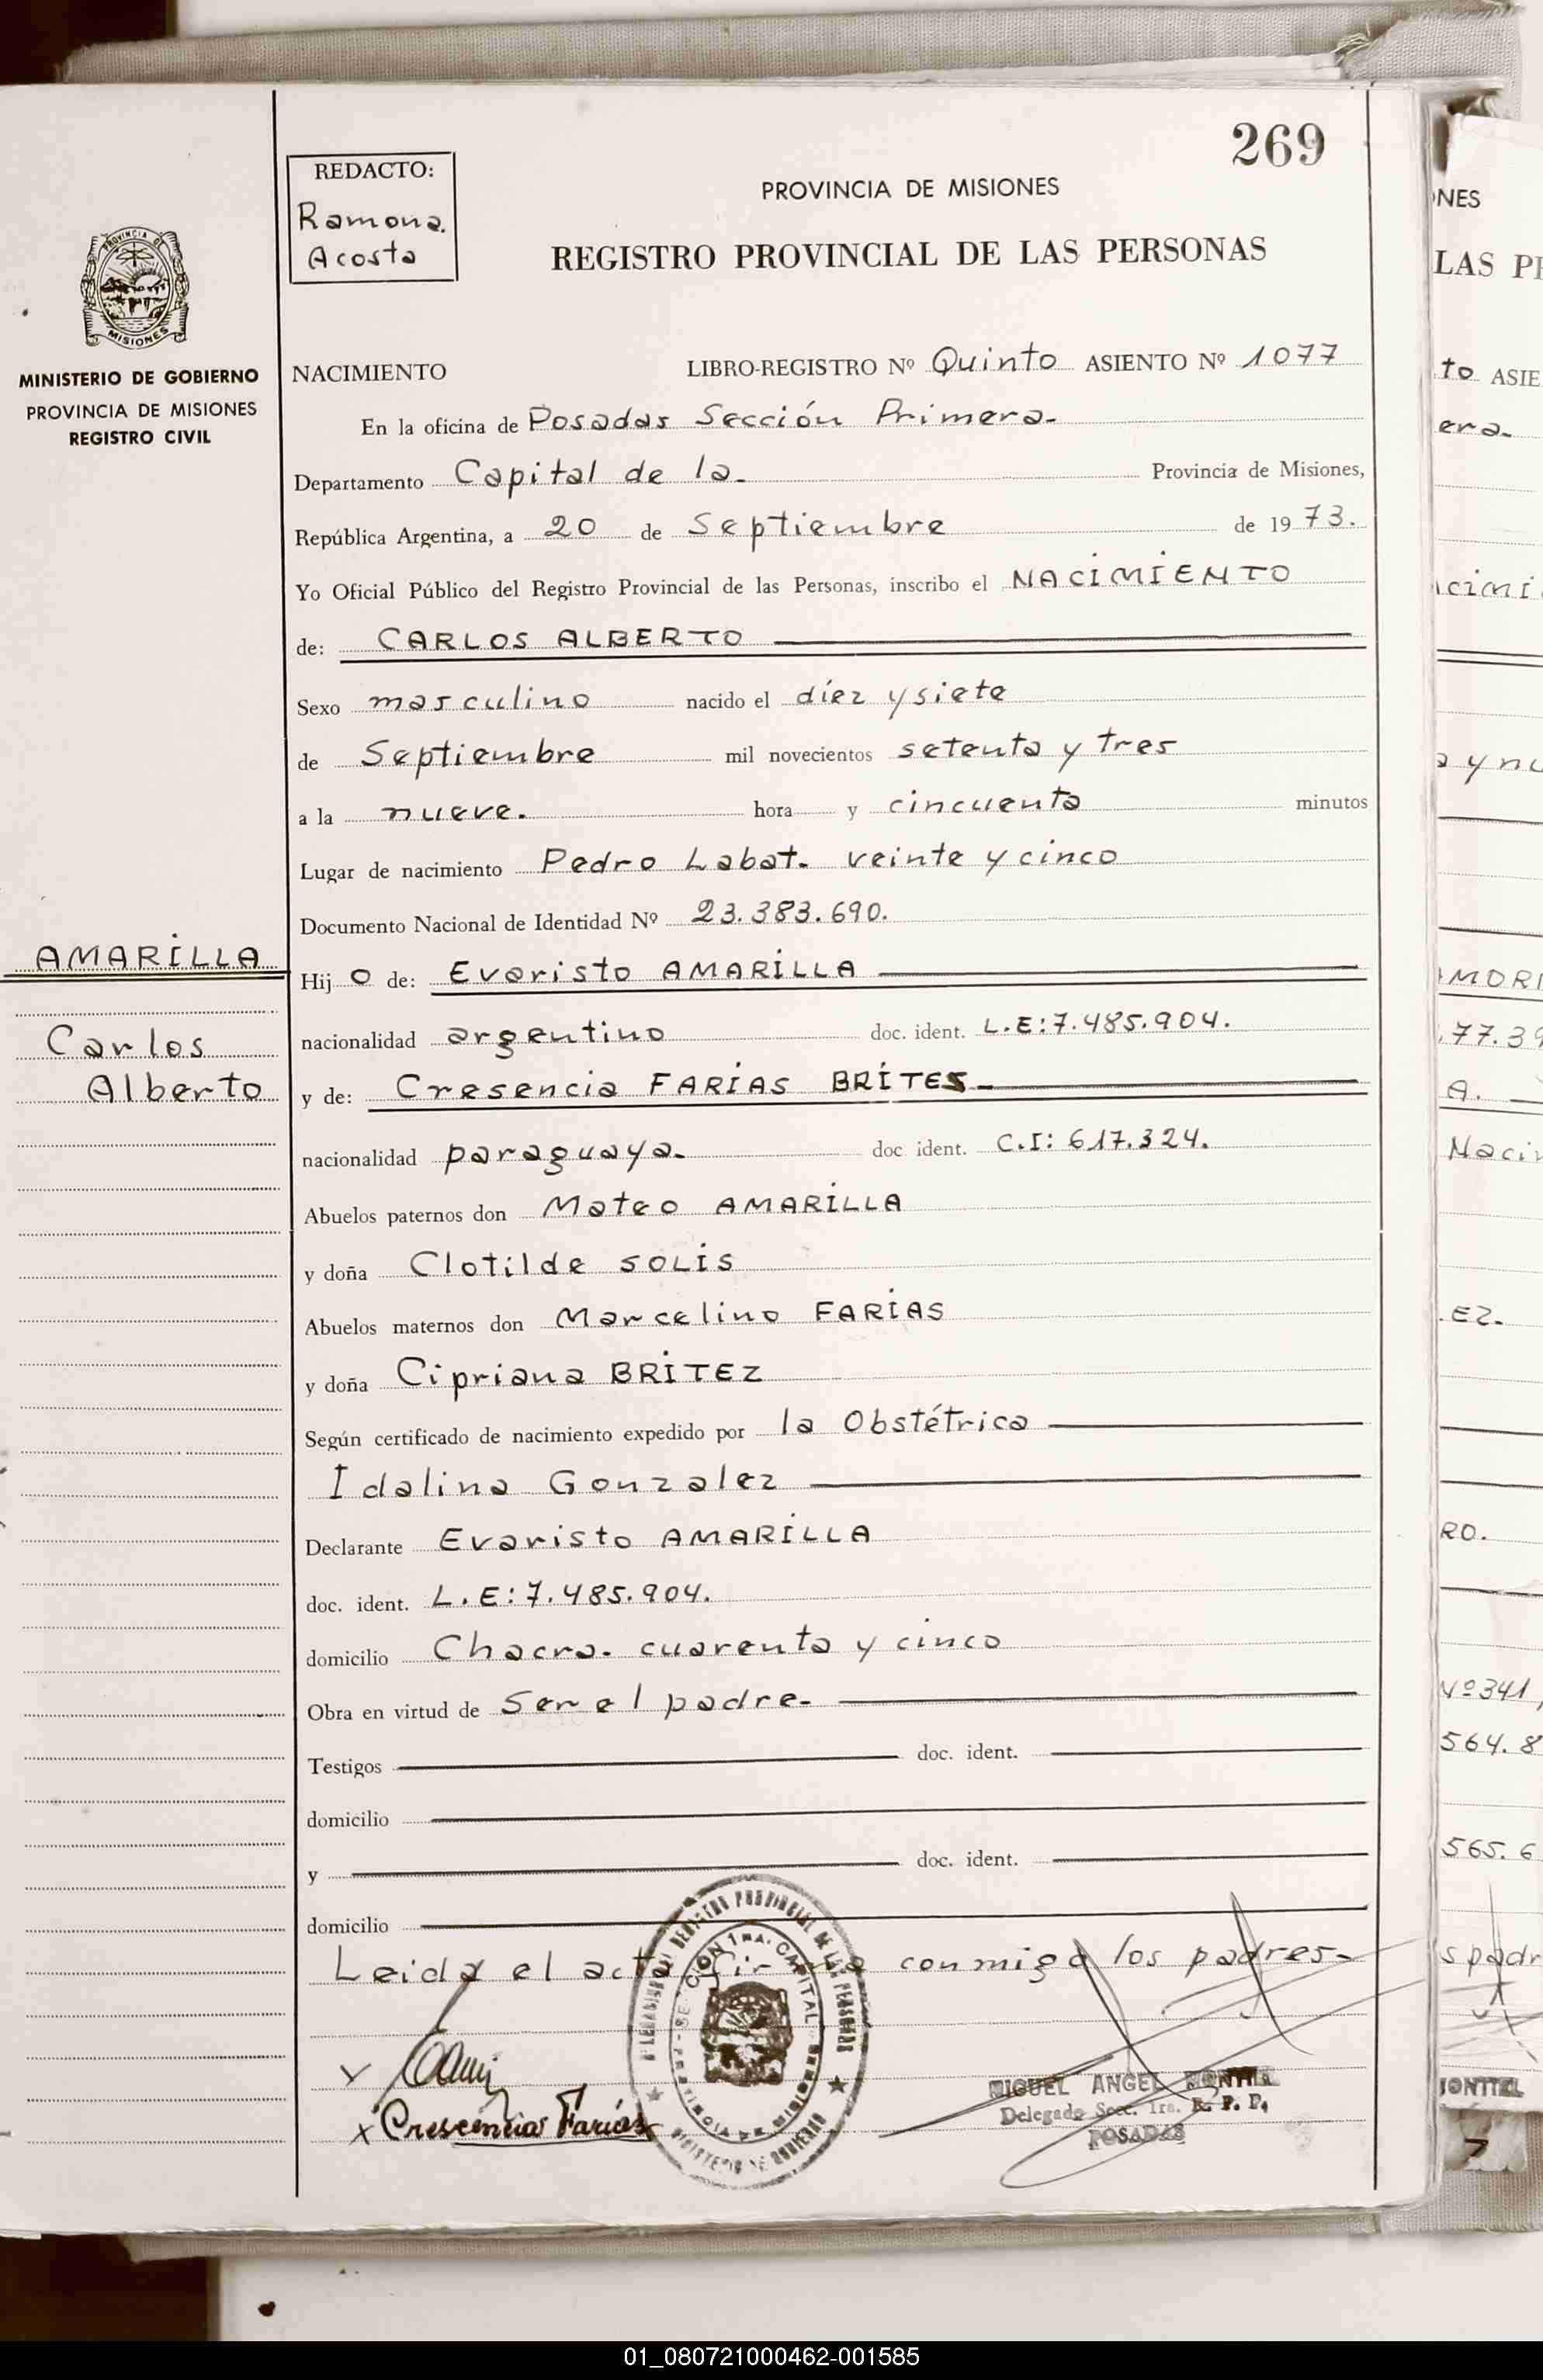 269
REDACTO:
Ramona.
Acosta
PROVINCIA DE MISIONES
REGISTRO PROVINCIAL DE LAS PERSONAS
PROVINCIA DE
MISIONES
MINISTERIO DE GOBIERNO
PROVINCIA DE MISIONES
REGISTRO CIVIL
NACIMIENTO LIBRO-REGISTRO Nº Quinto ASIENTO Nº 1077
En la oficina de Posadas Sección Primera.
Departamento Capital de la. Provincia de Misiones,
República Argentina, a 20 de Septiembre de 1973.
Yo Oficial Público del Registro Provincial de las Personas, inscribo el NACIMIENTO
de: CARLOS ALBERTO
Sexo masculino nacido el díez y siete
de Septiembre mil novecientos setenta y tres
a la nueve. hora y cincuenta minutos
Lugar de nacimiento Pedro Labat. veinte y cinco
Documento Nacional de Identidad Nº 23.383.690.
AMARILLA
Carlos
Alberto
Hijo de: Evaristo AMARILLA
nacionalidad argentino doc. ident. L.E:7.485.904.
y de: Cresencia FARIAS BRITES.
nacionalidad paraguaya. doc ident. C.I: 617.324.
Abuelos paternos don Mateo AMARILLA
y doña Clotilde SOLIS
Abuelos maternos don Marcelino FARIAS
y doña Cipriana BRITEZ
Según certificado de nacimiento expedido por la Obstétrica
Idalina Gonzalez
Declarante Evaristo AMARILLA
doc. ident. L.E:7.485.904.
domicilio Chacra. cuarenta y cinco
Obra en virtud de Ser el padre.
Testigos doc. ident.
domicilio
y doc. ident.
domicilio
Leida el acta conmigo los padres.
REGISTRO PROVINCIAL DE LAS PERSONAS
SECCION 1RA. CAPITAL
MINISTERIO DE GOBIERNO
x Crescencia Farías
MIGUEL ANGEL
Delegado Secc. 1ra. R. P. P.
POSADAS
ONES
LAS PE
to ASIE
era.
cimi
a y nu
MORI
.77.39
A.
Nacin
EZ.
RO.
Nº 341,
564.8
565.6
s padr
MONTTEL
01_080721000462-001585